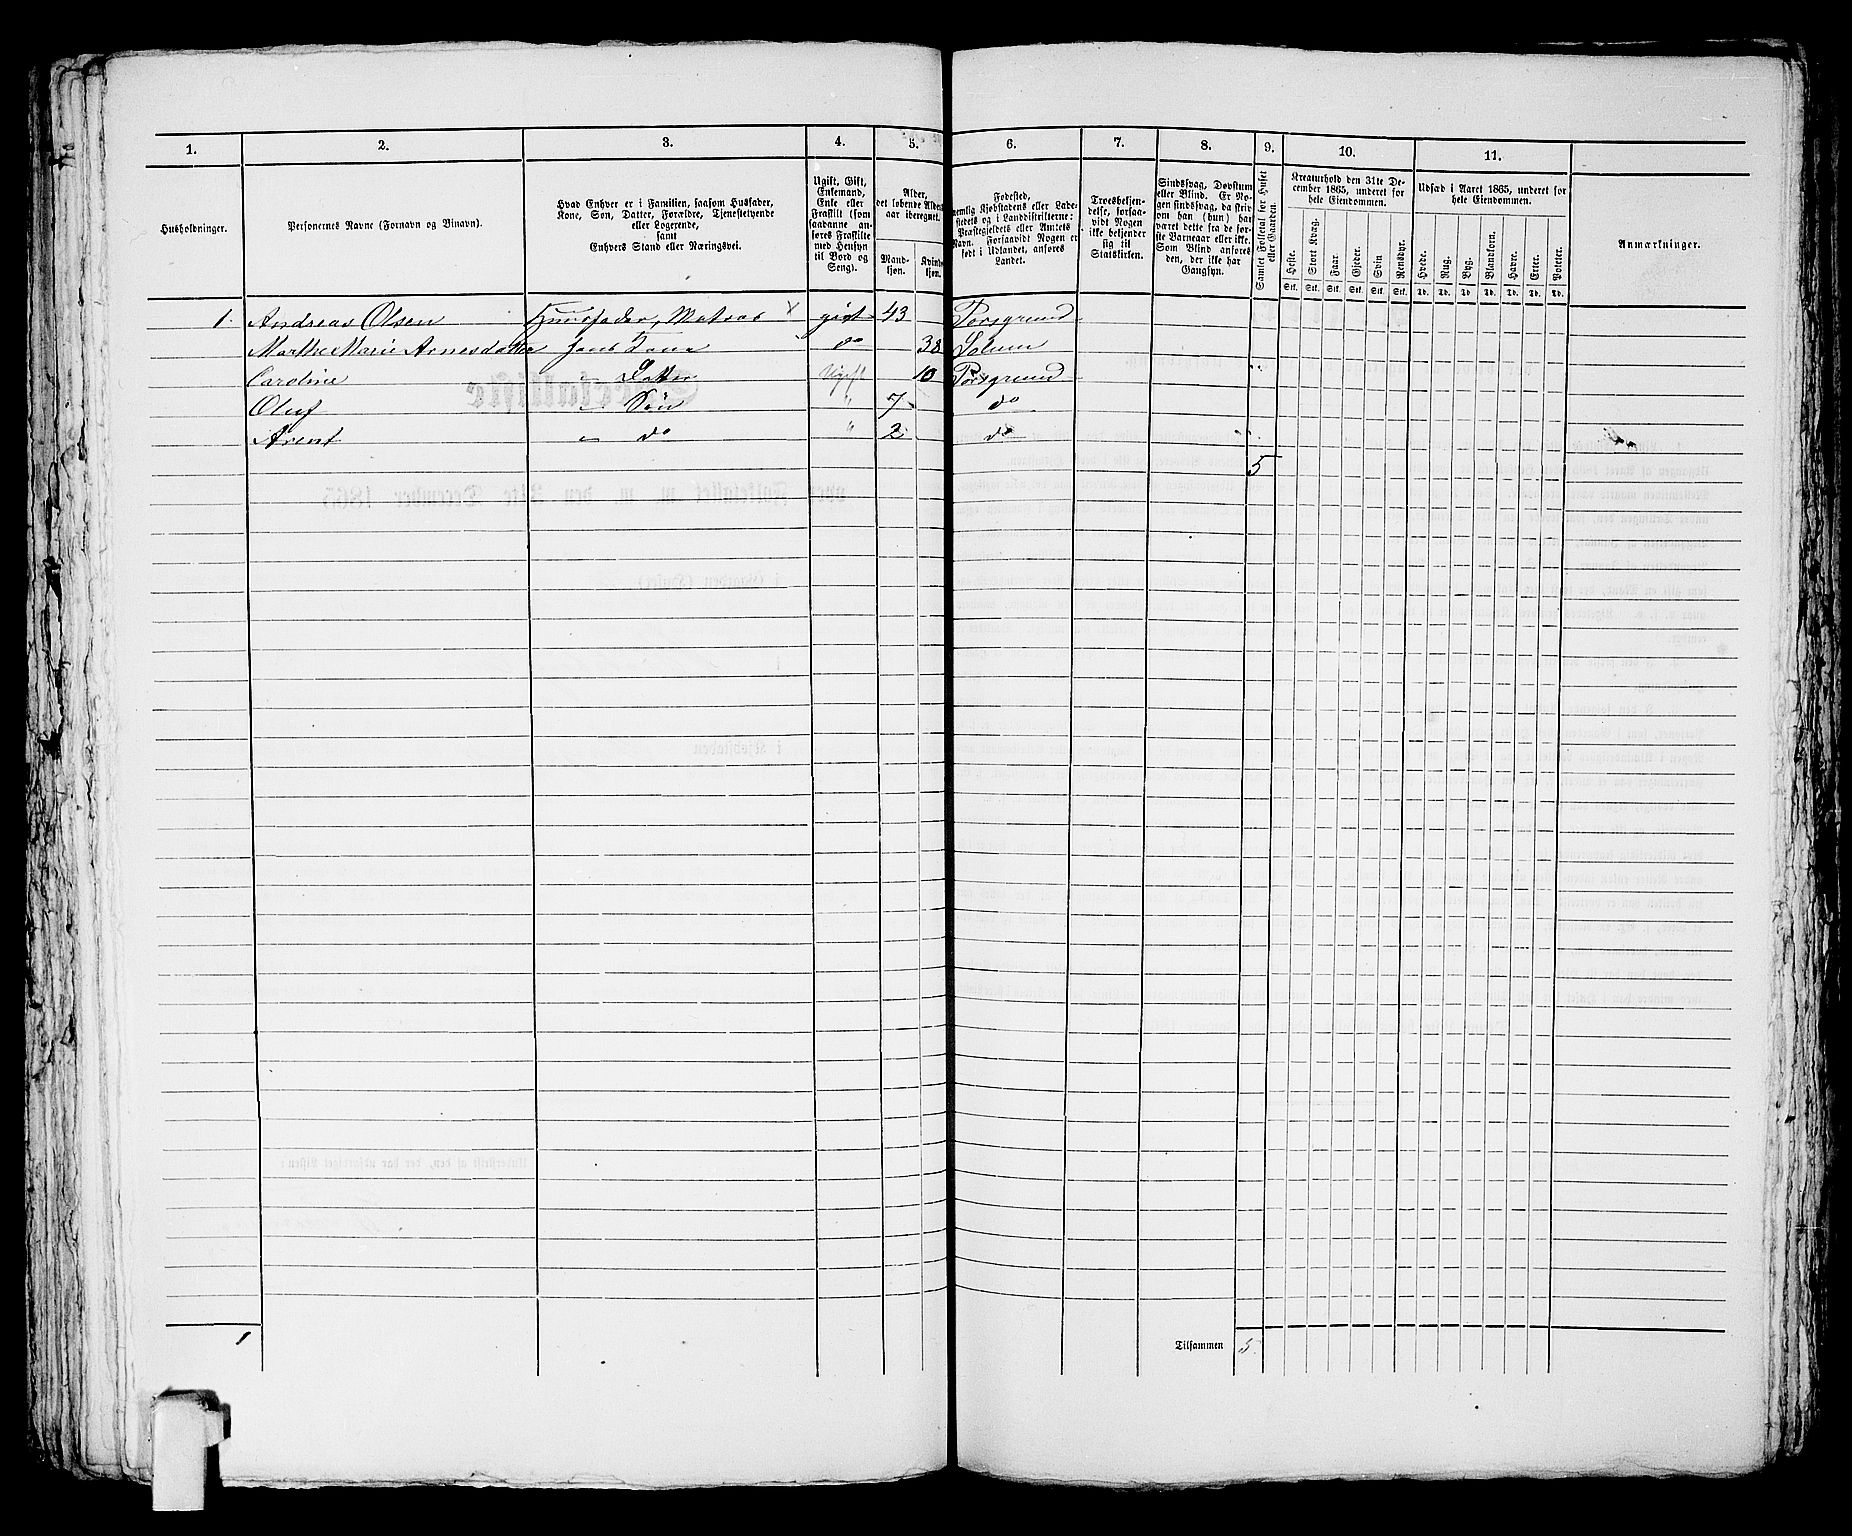 1. 2. 3. 4. 5. 6. 7. 8. 9. 10. 11.
Husholdninger.
Personernes Navne (Fornavn og Binavn).
Hvad Enhver er i Familien, saasom Husfader,
Kone, Søn, Datter, Forældre, Tjenestetyende
eller Logerende,
samt
Enhvers Stand eller Næringsvei.
Ugift, Gift,
Enkemand,
Enke eller
Fraskilt (som
saadanne an-
føres Fraskilte
med Hensyn
til Bord og
Seng).
Alder,
det løbende Alders-
aar iberegnet.
Mand-
kjøn.
Kvinde-
kjøn.
Fødested,
nemlig Kjøbstadens eller Lade-
stedets og i Landdistrikterne:
Præstegjeldets eller Amtets
Navn. Forsaavidt Nogen er
født i Udlandet, anføres
Landet.
Troesbekjen-
delse, forsaa-
vidt Nogen
ikke bekjender
sig til
Statskirken.
Sindssvag, Døvstum
eller Blind. Er No-
gen sindssvag, da skriv
om han (hun) har
været dette fra de før-
ste Barneaar eller ikke.
Som Blind anføres
den, der ikke har
Gangsyn.
Samlet Folketal for Huset
eller Gaarden.
Kreaturhold den 31te De-
cember 1865, underet for
hele Eiendommen.
Heste. Stort Kvæg. Faar. Gjeder. Svin Rensdyr.
Stk. Stk. Stk. Stk. Stk. Stk.
Udsæd i Aaret 1865, underet for
hele Eiendommen.
Hvede. Rug. Byg. Blandkorn. Havre. Erter. Poteter.
Td. Td. Td. Td. Td. Td. Td.
Anmærkninger.
1. Andreas Olsen Huusfader, Matros gift 43 Porsgrund
Marthe Marie Arnesdatter hans Kone do 38 Solum
Caroline " Datter Ugift 10 Porsgrund
Oluf " Søn " 7 do
Arent " do " 2 do
5
1 Tilsammen 5.